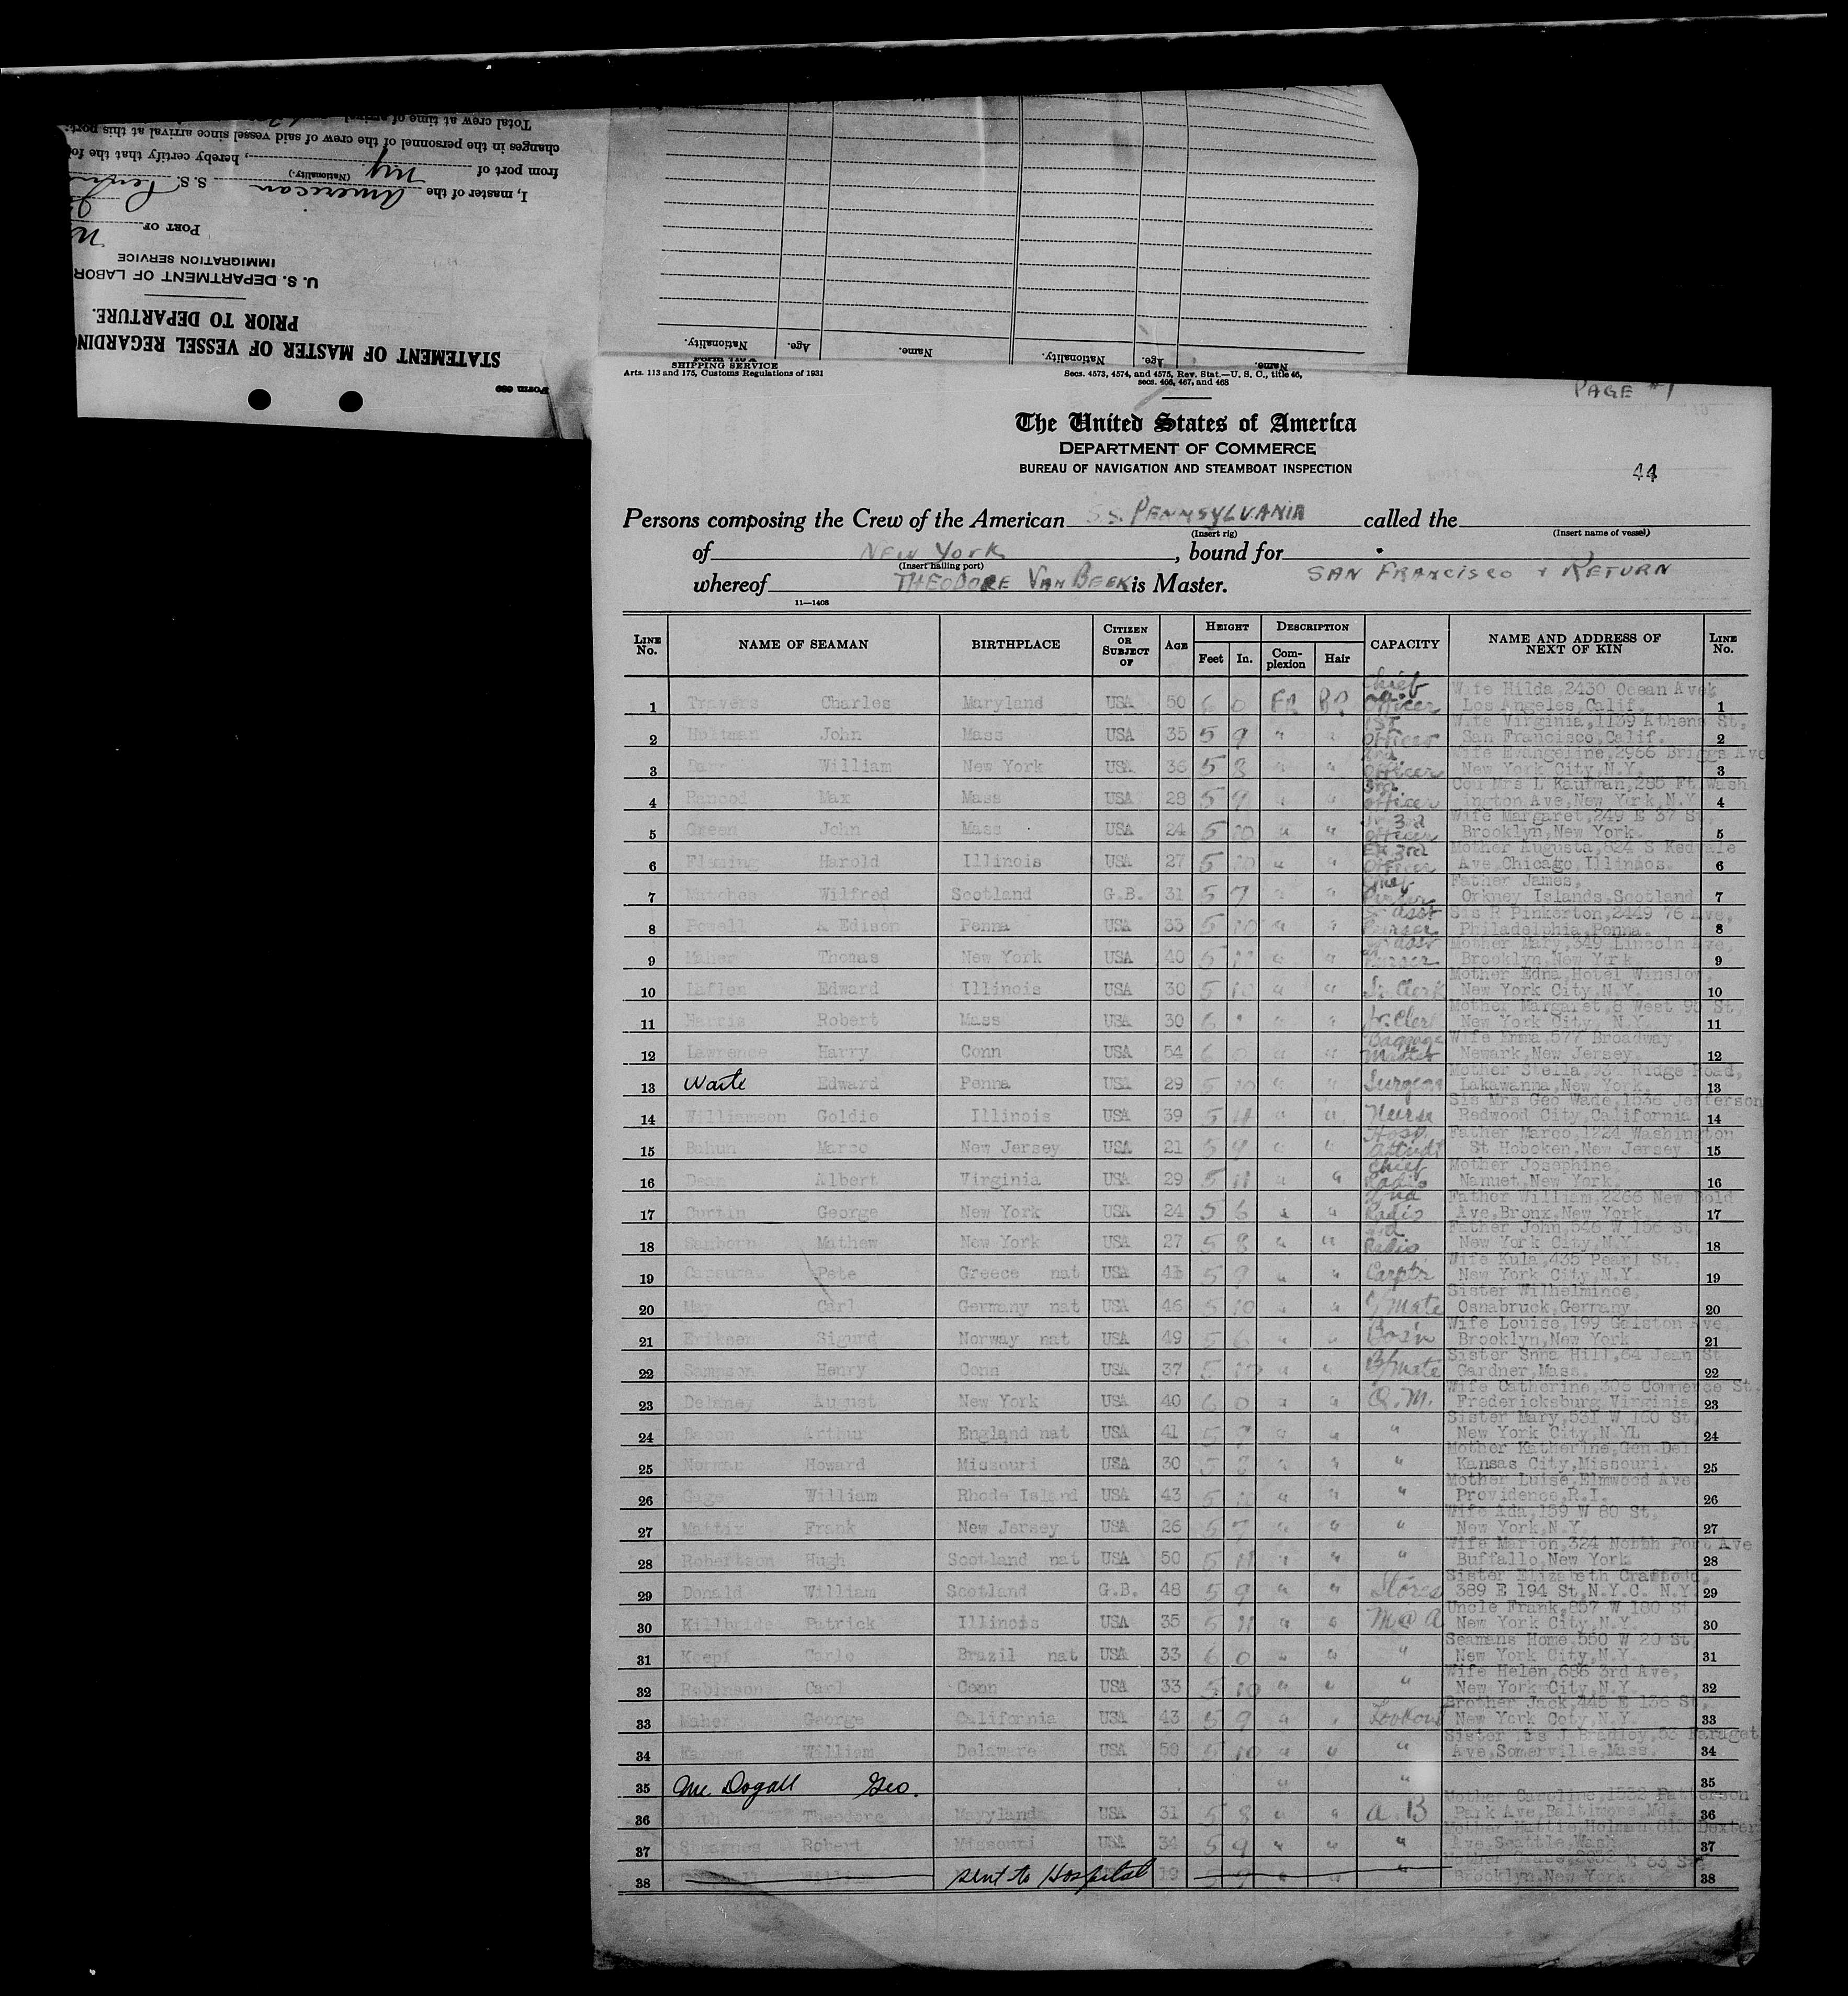 Total crew at time of
changes in the personnel of the crew of said vessel since arrival at this port:
from port of NY, hereby certify that the
(Nationality.)
I, master of the American S. S.
PORT OF
IMMIGRATION SERVICE
U. S. DEPARTMENT OF LABOR
PRIOR TO DEPARTURE.
STATEMENT OF MASTER OF VESSEL REGARDING
Form 689
Nationality. Age. Name. Nationality. Age. Name.
SHIPPING SERVICE
Arts. 113 and 175, Customs Regulations of 1931
Secs. 4573, 4574, and 4575, Rev. Stat.—U. S. C., title 46,
secs. 466, 467, and 468
PAGE #1
The United States of America
DEPARTMENT OF COMMERCE
BUREAU OF NAVIGATION AND STEAMBOAT INSPECTION
44
Persons composing the Crew of the American S.S. PENNSYLVANIA called the
(Insert rig) (Insert name of vessel)
of NEW YORK, bound for
(Insert hailing port)
whereof THEODORE VAN BEEK is Master. SAN FRANCISCO & RETURN
11—1408
LINE No. NAME OF SEAMAN BIRTHPLACE CITIZEN OR SUBJECT OF AGE HEIGHT Feet In. DESCRIPTION Complexion Hair CAPACITY NAME AND ADDRESS OF NEXT OF KIN LINE No.
1 Travers Charles Maryland USA 50 6 0 Chief Officer Wife Hilda,2430 Ocean Ave Los Angeles,Calif. 1
2 Holtman John Mass USA 35 5 9 " " 1st Officer Wife Virginia,1139 Athens St, San Francisco,Calif. 2
3 William New York USA 36 5 8 " " 2nd Officer Wife Evangeline,2966 Briggs Ave New York City,N.Y. 3
4 Max Mass USA 28 5 9 " " 3rd Officer Cou Mrs L Kaufman,285 Ft Wash ington Ave,New York,N.Y 4
5 Green John Mass USA 24 5 10 " " Jr 3rd Officer Wife Margaret,249 E 37 St, Brooklyn,New York. 5
6 Fleming Harold Illinois USA 27 5 10 " " Ex 3rd Officer Mother Augusta,824 S Kedvale Ave Chicago,Illinois. 6
7 Wilfred Scotland G.B. 31 5 7 " " Chief Purser Father James, Orkney Islands,Scotland 7
8 Powell Edison Penna USA 33 5 10 " " Asst Purser Sis R Pinkerton,2449 76 Ave, Philadelphia,Penna. 8
9 Maher Thomas New York USA 40 5 11 " " Asst Purser Mother Mary,349 Lincoln Ave, Brooklyn,New York. 9
10 Laflen Edward Illinois USA 30 5 10 " " Sr. Clerk Mother Edna,Hotel Winslow, New York City,N.Y. 10
11 Harris Robert Mass USA 30 6 " " " Jr. Clerk Mother Margaret,8 West 95 St, New York City, N.Y. 11
12 Lawrence Harry Conn USA 54 6 0 " " Baggage Master Wife Emma,577 Broadway, Newark,New Jersey. 12
13 Waite Edward Penna USA 29 5 10 " " Surgeon Mother Stella,934 Ridge Road, Lakawanna,New York. 13
14 Williamson Goldie Illinois USA 39 5 4 " " Nurse Sis Mrs Geo Wade,1536 Jefferson Redwood City,California 14
15 Bahun Marco New Jersey USA 21 5 9 " " Hosp. Attndt Father Marco,1224 Washington St Hoboken,New Jersey 15
16 Dean Albert Virginia USA 29 5 11 " " Chief Radio Mother Josephine, Nanuet,New York. 16
17 Curtin George New York USA 24 5 6 " " 2nd Radio Father William,2266 New Bold Ave,Bronx,New York. 17
18 Sanborn Mathew New York USA 27 5 8 " " 3rd Radio Father John,546 W 156 St New York City,N.Y. 18
19 Pete Greece nat USA 41 5 9 " " Carptr Wife Kula,435 Pearl St, New York City,N.Y. 19
20 May Carl Germany nat USA 46 5 10 " " C/Mate Sister Wilhelmince, Osnabruck,Germany 20
21 Eriksen Sigurd Norway nat USA 49 5 6 " " Bos'n Wife Louise,199 Galston Ave, Brooklyn,New York 21
22 Sampson Henry Conn USA 37 5 10 " " B/Mate Sister Snna Hill,64 Jean St, Gardner,Mass. 22
23 Delaney August New York USA 40 6 0 " " Q.M. Wife Catherine,306 Commerce St. Fredericksburg,Virginia 23
24 Bacon Arthur England nat USA 41 5 9 " " " Sister Mary,531 W 160 St New York City,N.YL 24
25 Norman Howard Missouri USA 30 5 8 " " " Mother Katherine,Gen Del Kansas City,Missouri. 25
26 Gage William Rhode Island USA 43 5 11 " " " Mother Luise,Elmwood Ave Providence,R.I. 26
27 Mattix Frank New Jersey USA 26 5 7 " " " Wife Ada,159 W 80 St, New York,N.Y. 27
28 Robertson Hugh Scotland nat USA 50 5 11 " " " Wife Marion,324 North Port Ave Buffallo,New York 28
29 Donald William Scotland G.B. 48 5 9 " " Stores Sister Elizabeth Craffoud, 389 E 194 St,N.Y.C. N.Y. 29
30 Killbride Patrick Illinois USA 35 5 11 " " M@A Uncle Frank,857 W 180 St New York City,N.Y. 30
31 Koepf Carlo Brazil nat USA 33 6 0 " " " Seamans Home,550 W 20 St, New York City,N.Y. 31
32 Robinson Carl Conn USA 33 5 10 " " " Wife Helen,686 3rd Ave, New York City,N.Y. 32
33 Maher George California USA 43 5 9 " " Lookout Brother Jack,446 E 136 St, New York Coty,N.Y. 33
34 William Delaware USA 50 5 10 " " " Sister Mrs J Bradley,53 Ave,Somerville,Mass. 34
35 Mc Dogall Geo. " " 35
36 Theodore Mayyland USA 31 5 8 " " A.B Mother Caroline,1532 Patterson Park Ave,Baltimore,Md. 36
37 Stearnes Robert Missouri USA 34 5 9 " " " Mother Hattie,Holman,815 Dexter Ave,Seattle,Wash. 37
38 sent to Hospital 19 5 9 " " " E 63 St, Brooklyn,New York 38